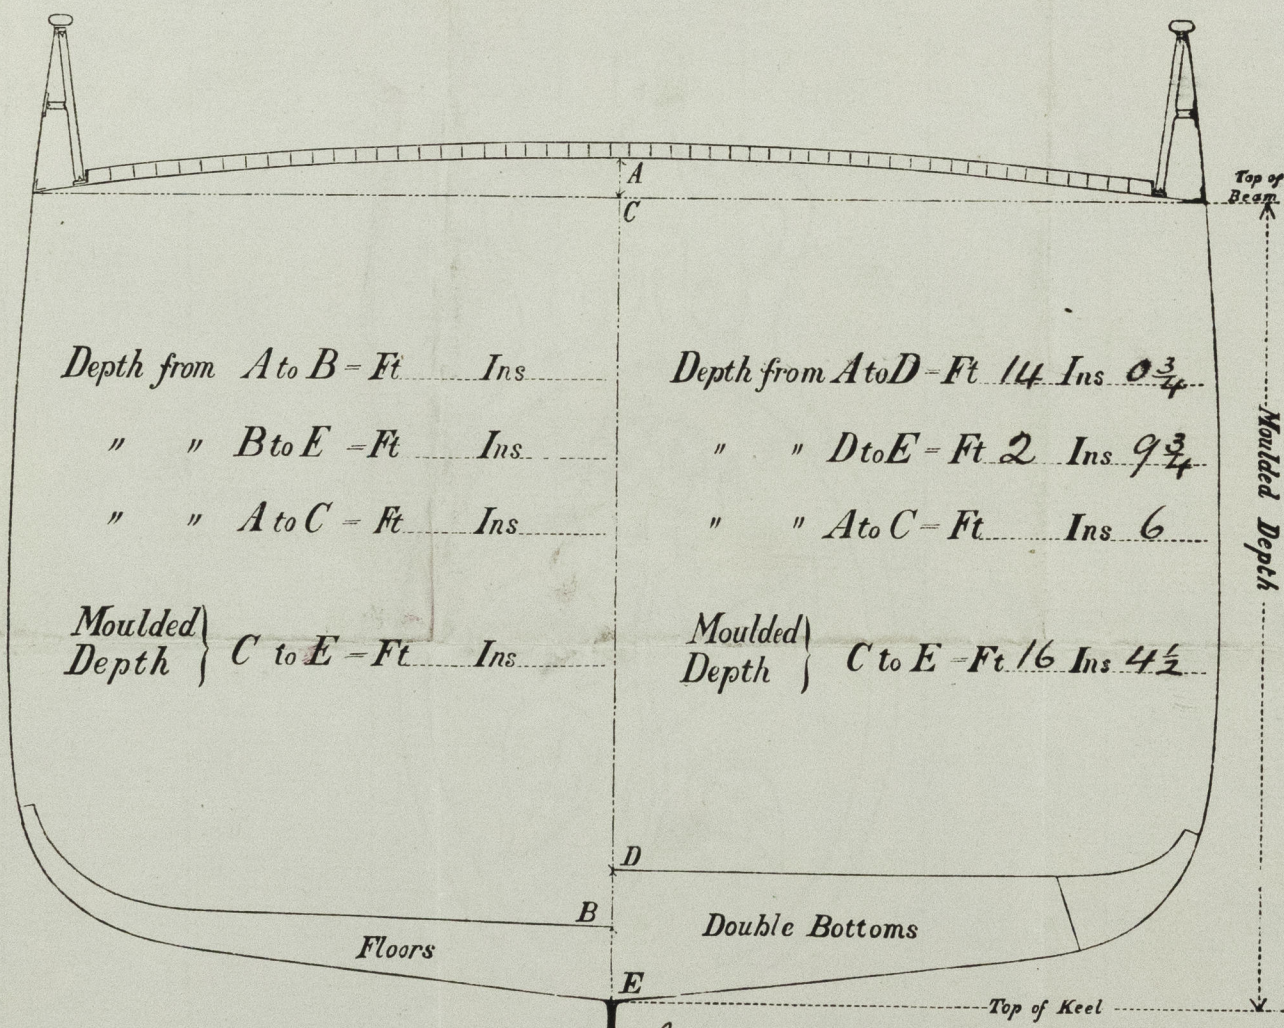 Top of
Beam
A
C
Depth from A to B = Ft Ins
" " B to E = Ft Ins
" " A to C = Ft Ins
Moulded
Depth } C to E = Ft Ins
Depth from A to D = Ft 14 Ins 0 3/4
" " D to E = Ft 2 Ins 9 3/4
" " A to C = Ft Ins 6
Moulded
Depth } C to E = Ft 16 Ins 4 1/2
Moulded Depth
D
B
Floors
Double Bottoms
E
Top of Keel